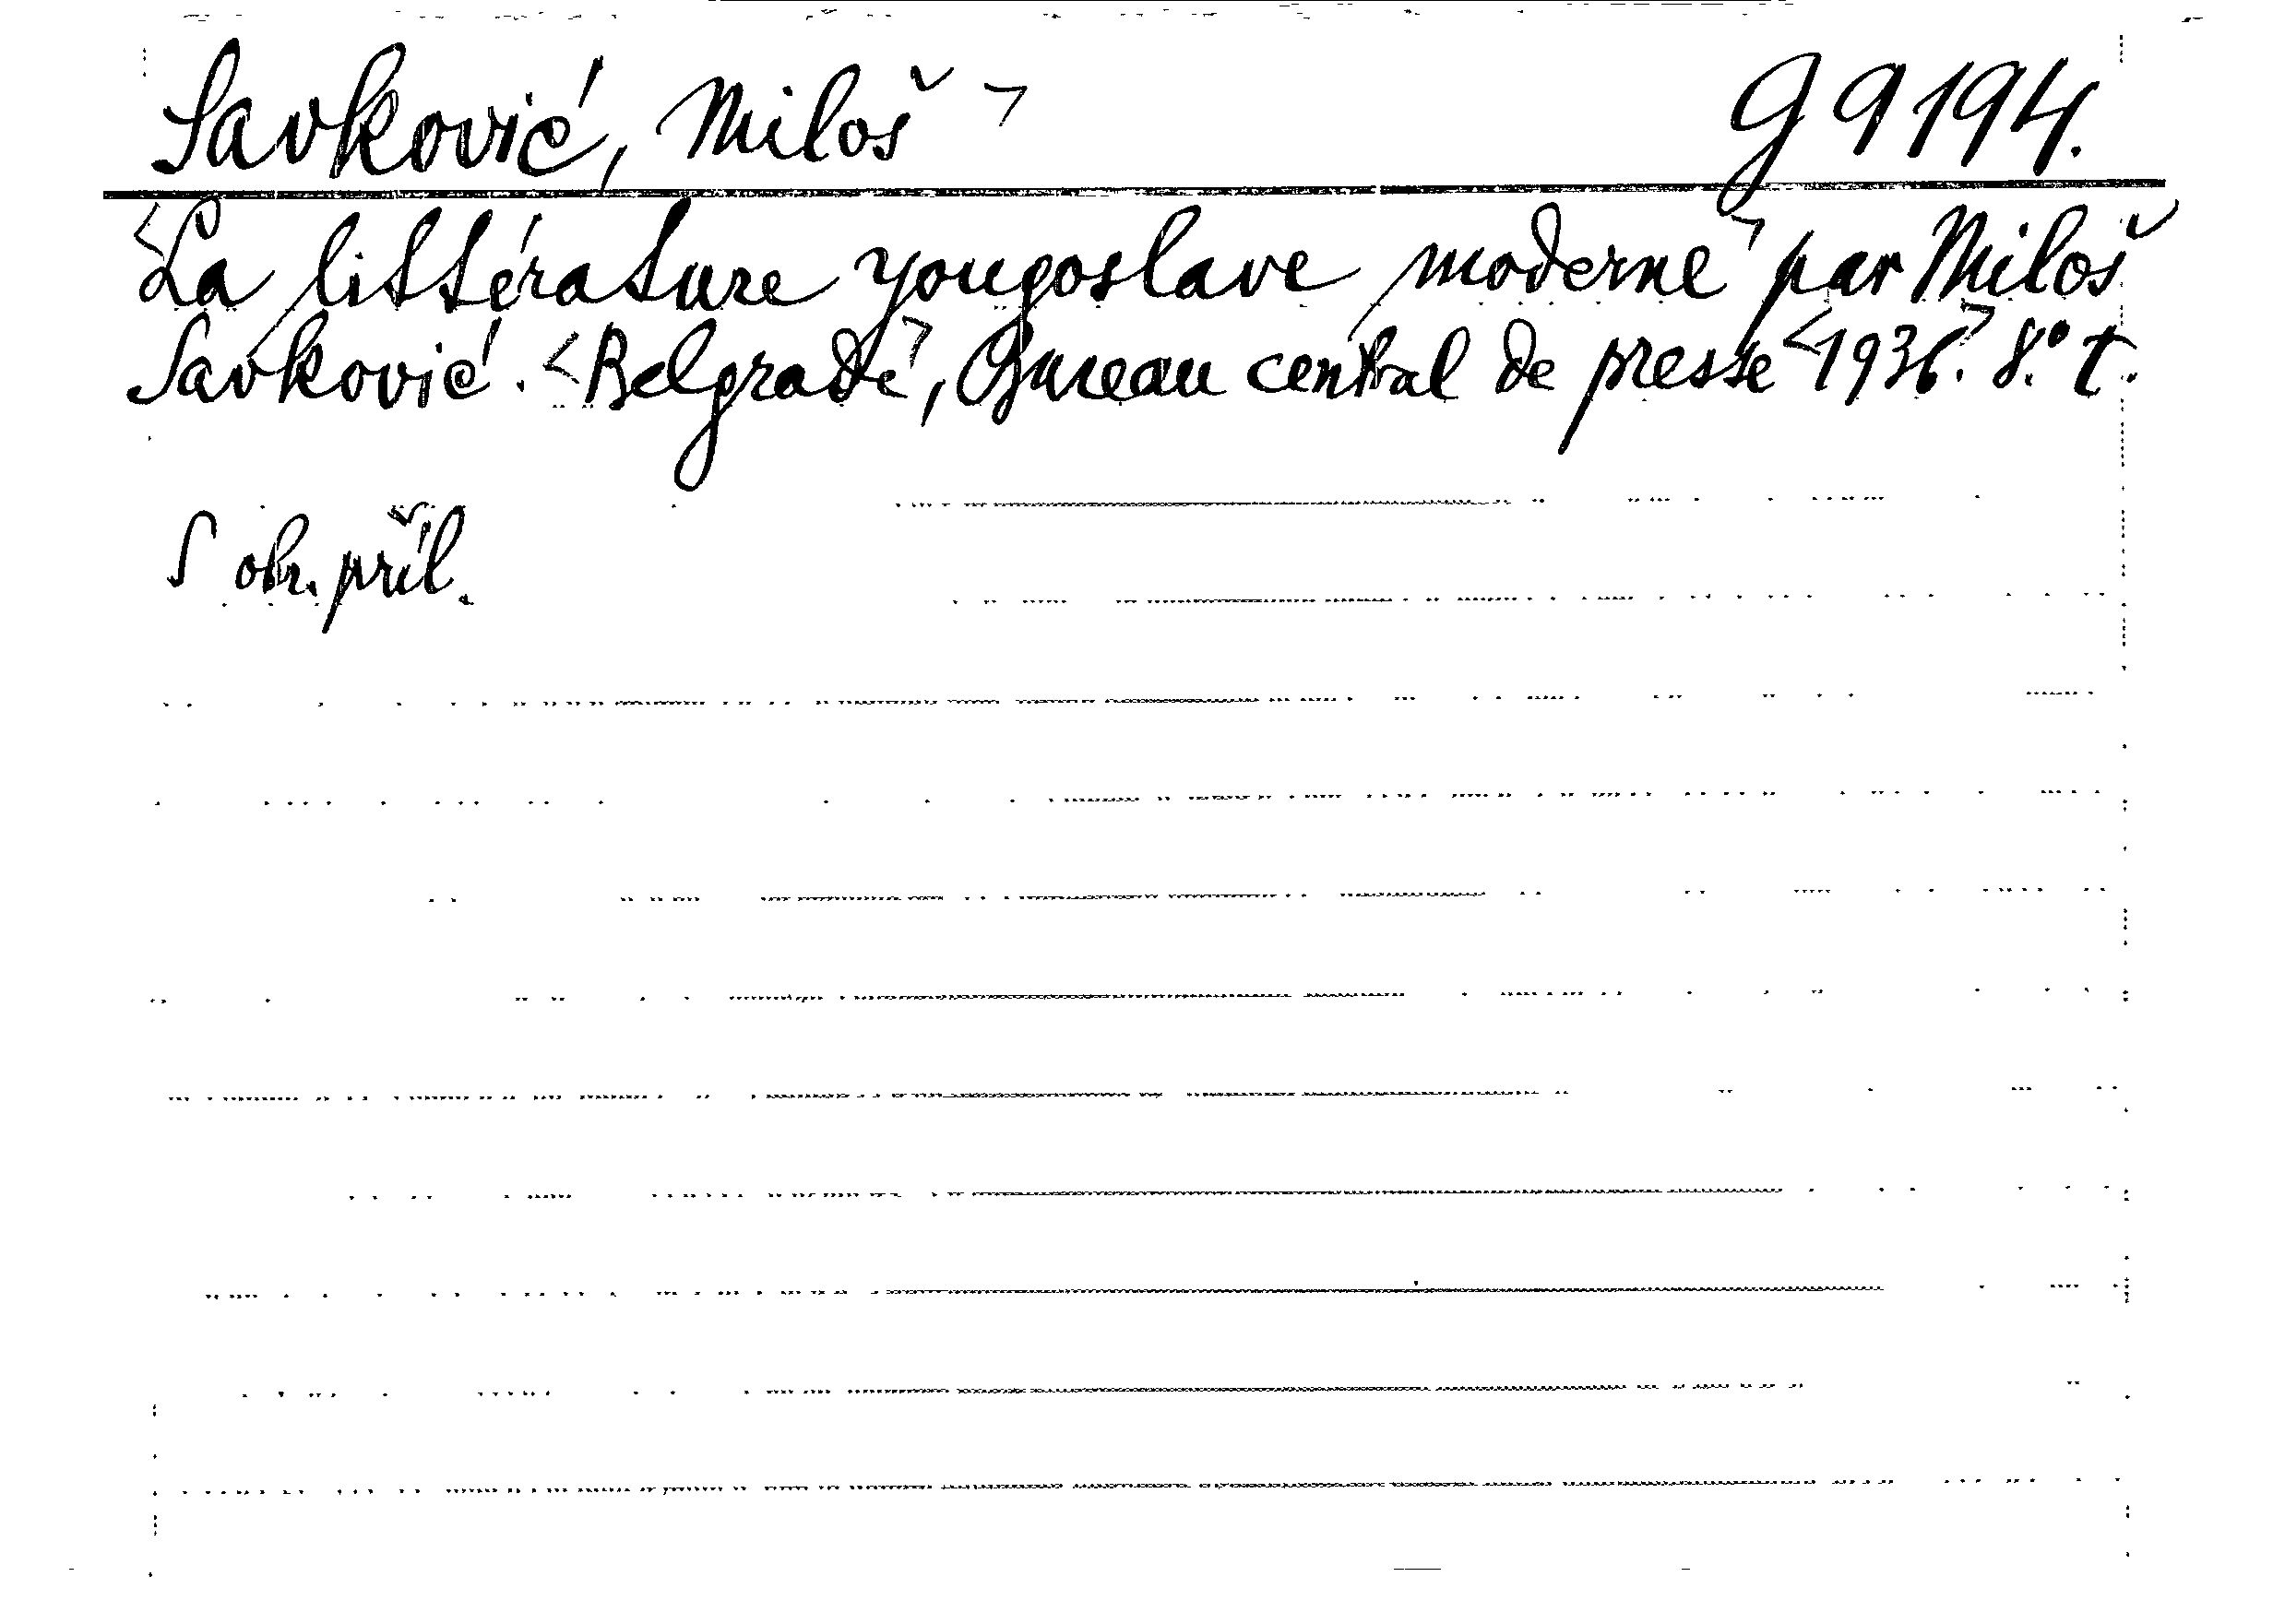 Savković, Miloš ¬ g 9194.
<La littérature yougoslave moderne¬ par Miloš
Savković. <Belgrade¬, Bureau central de presse <1936.¬ 8.° t.
S obr. příl.